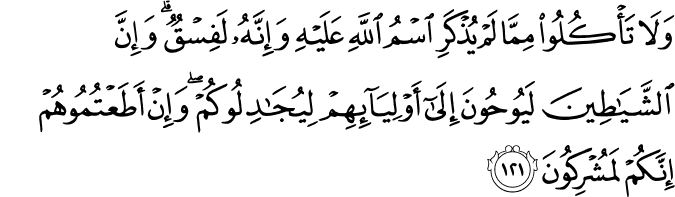 وَلَا تَأْكُلُوا۟ مِمَّا لَمْ يُذْكَرِ ٱسْمُ ٱللَّهِ عَلَيْهِ وَإِنَّهُۥ لَفِسْقٌۭ ۗ وَإِنَّ
ٱلشَّيَـٰطِينَ لَيُوحُونَ إِلَىٰٓ أَوْلِيَآئِهِمْ لِيُجَـٰدِلُوكُمْ ۖ وَإِنْ أَطَعْتُمُوهُمْ
إِنَّكُمْ لَمُشْرِكُونَ ١٢١